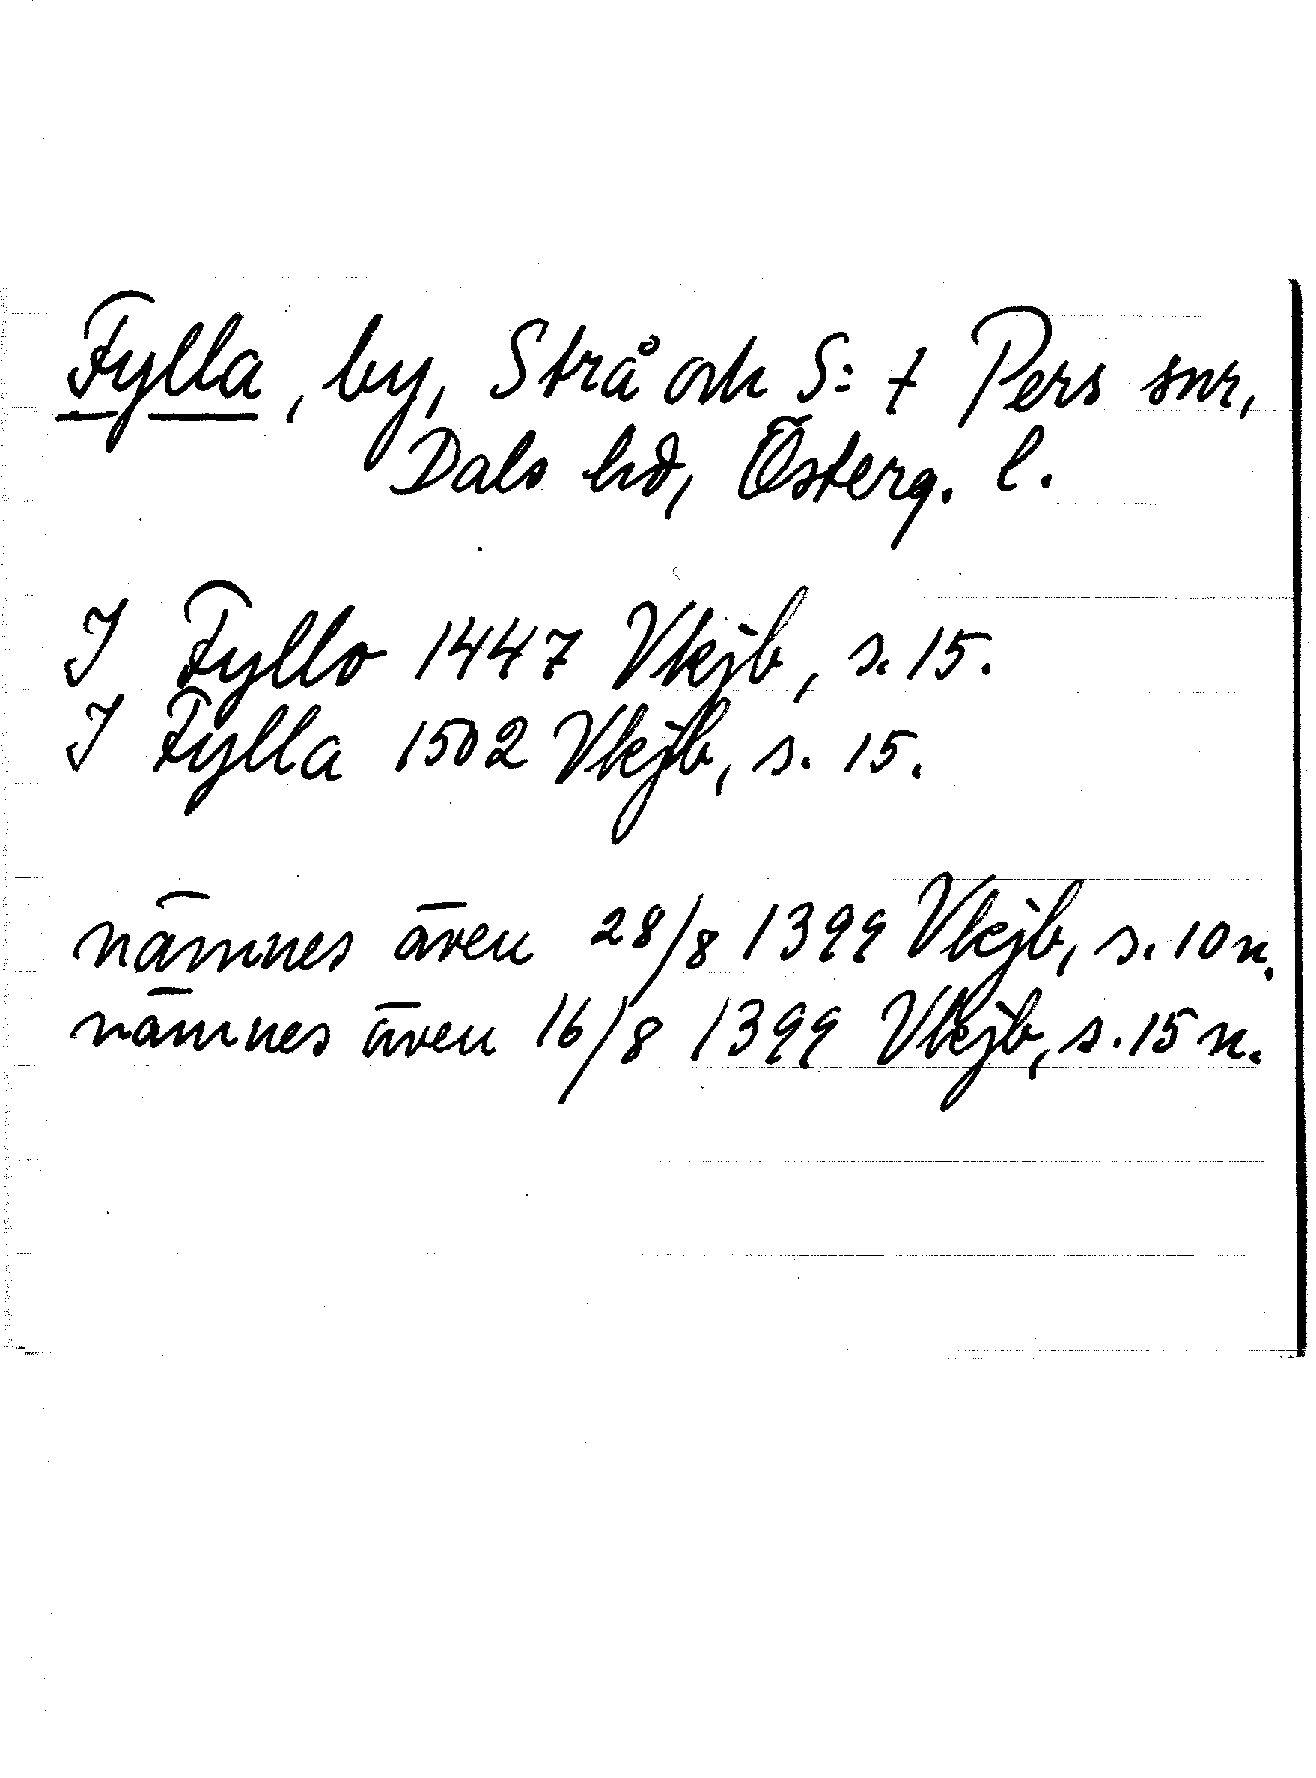 Fylla, by, Strå och S:t Pers snr,
Dals hd, Österg. l.
I Fyllo 1447 Vkjb, s. 15.
I Fylla 1502 Vkjb, s. 15.
nämnes även 28/8 1399 Vkjb, s. 10 n.
nämnes även 16/8 1399 Vkjb, s. 15 n.